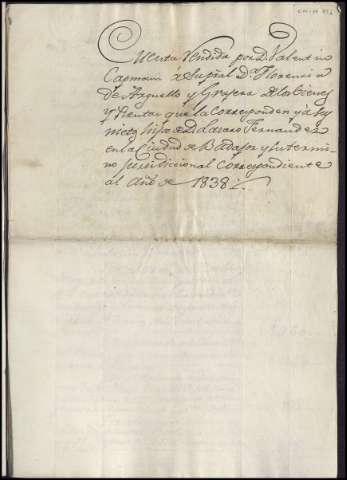 Cuenta Rendida por D. Valentin
Capmain a Dª Florencia
de y Grajera de los Bienes
y Rentas que la Corresponden y a su
nieto hijo de D. Lazaro Fernandez
en la Ciudad de Badajoz y su termi-
no Jurisdiccional Correspondiente
al Año de 1838